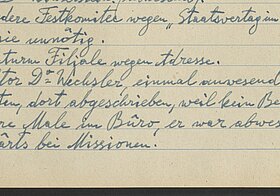 dere Festkomitee wegen „Staatsvertrag in
sie unnötig.
turm Filjale wegen Adresse.
tor Dr. Wechsler, einmal anwesend
ten, dort abgeschrieben, weil kein Be
re Male im Büro, er war abwes
ärts bei Missionen.